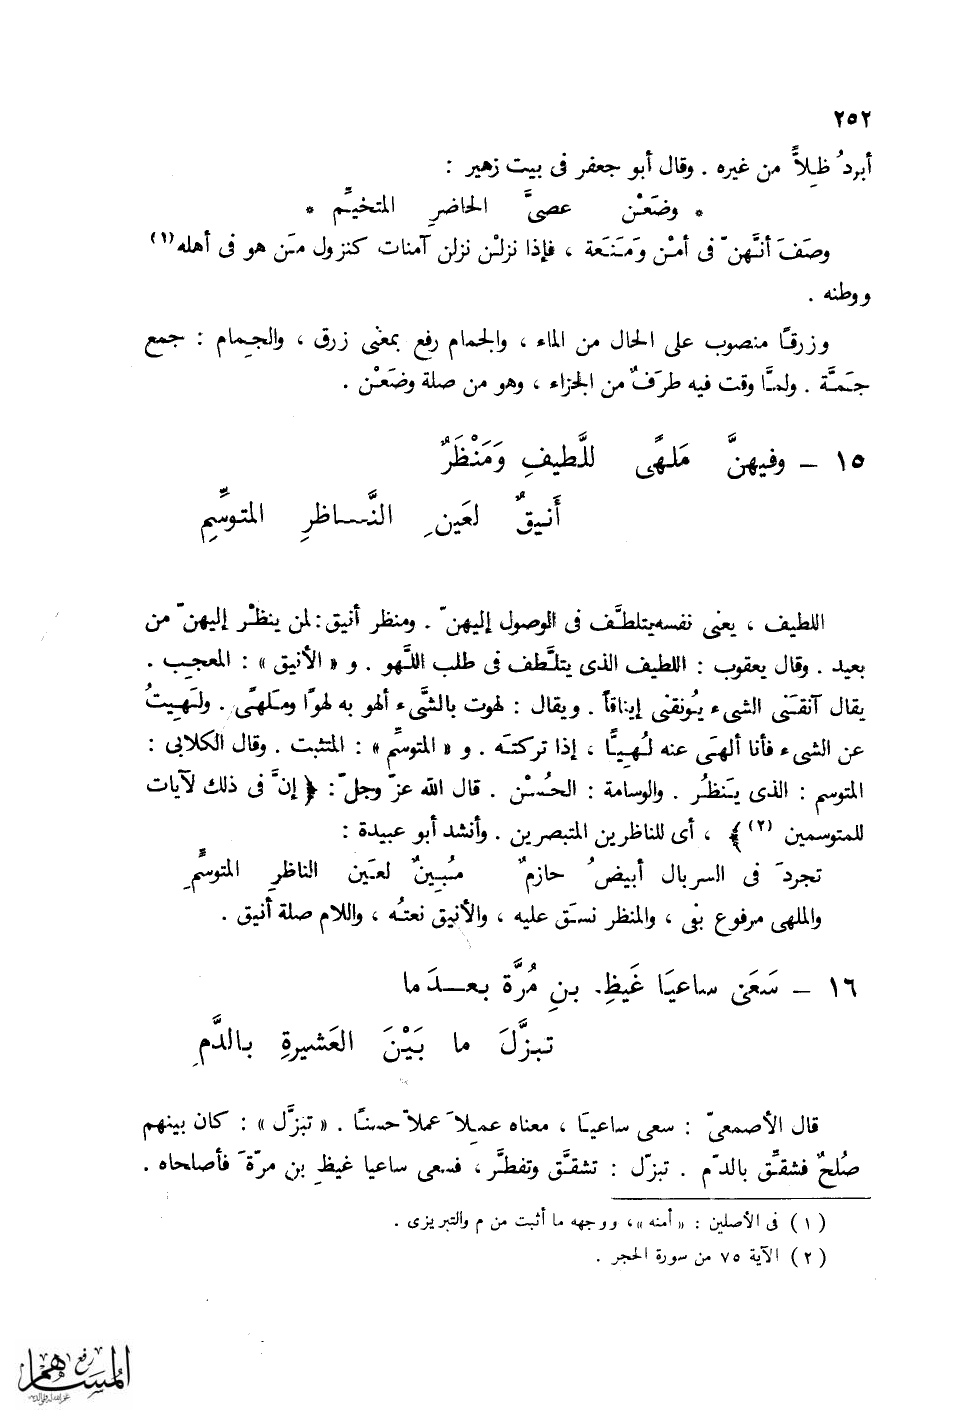 ٢٥٢
أبردُ ظِلاًّ من غيره . وقال أبو جعفر فى بيت زهير :
* وضَعْن عصىَّ الحاضرِ المتخيِّم *
وصَفَ أنَّهنّ فى أمْن وَمَنَعة ، فإذا نزلْن نزلن آمنات كنزول مَن هو فى أهله(١)
ووطنه .
وزرقًا منصوب على الحال من الماء ، والجمام رفع بمعنى زرق ، والجِمام : جمع
جَمَّة . ولمَّا وقت فيه طرَفٌ من الجزاء ، وهو من صلة وضَعْن .
١٥ – وفيهنَّ مَلهًى للَّطيفِ وَمَنْظَرٌ
أَنيقٌ لعَينِ النَّاظرِ المتوسِّمِ
اللطيف ، يعنى نفسه يتلطَّف فى الوصول إليهنّ . ومنظر أنيق: لمن ينظْر إليهنّ من
بعيد . وقال يعقوب : اللطيف الذى يتلَّطف فى طلب اللَّهو . و « الأنيق » : المعجِب .
يقال آنقَنى الشىء يُونقنى إيناقاً . ويقال : لهوت بالشَّىء ألهو به لهوًا ومَلهًى . ولَهِيتُ
عن الشىء فأنا ألهَى عنه لُهِيًّا ، إذا تركتَه . و « المتوسِّم » : المتثبت . وقال الكلابى :
المتوسم : الذى يَنظُر . والوسامة : الحُسْن . قال الله عزّ وجلّ : ﴿ إنَّ فى ذلك لآيات
للمتوسمين (٢) ﴾ ، أى للناظرين المتبصرين . وأنشد أبو عبيدة :
تجردَ فى السربال أبيضُ حازمٌ مُبِينٌ لعَين الناظرِ المتوسِّمِ
والملهى مرفوع بفى ، والمنظر نسَق عليه ، والأنيق نعتُه ، واللام صلة أنيق .
١٦ – سَعَى ساعيَا غَيظِ بنِ مُرَّة بعدَ ما
تبزَّلَ ما بَيْنَ العَشيرةِ بالدَّمِ
قال الأصمعىّ : سعى ساعيَا ، معناه عمِلاَ عملاً حسنًا . « تبزَّل » : كان بينهم
صُلحٌ فشقِّق بالدّم . تبزّل : تشقَّق وتفطَّر ، فسعى ساعيا غيظِ بن مرّةَ فأصلحاه .
(١) فى الأصلين : « أمنه »، ووجهه ما أثبت من م والتبريزى .
(٢) الآية ٧٥ من سورة الحجر .